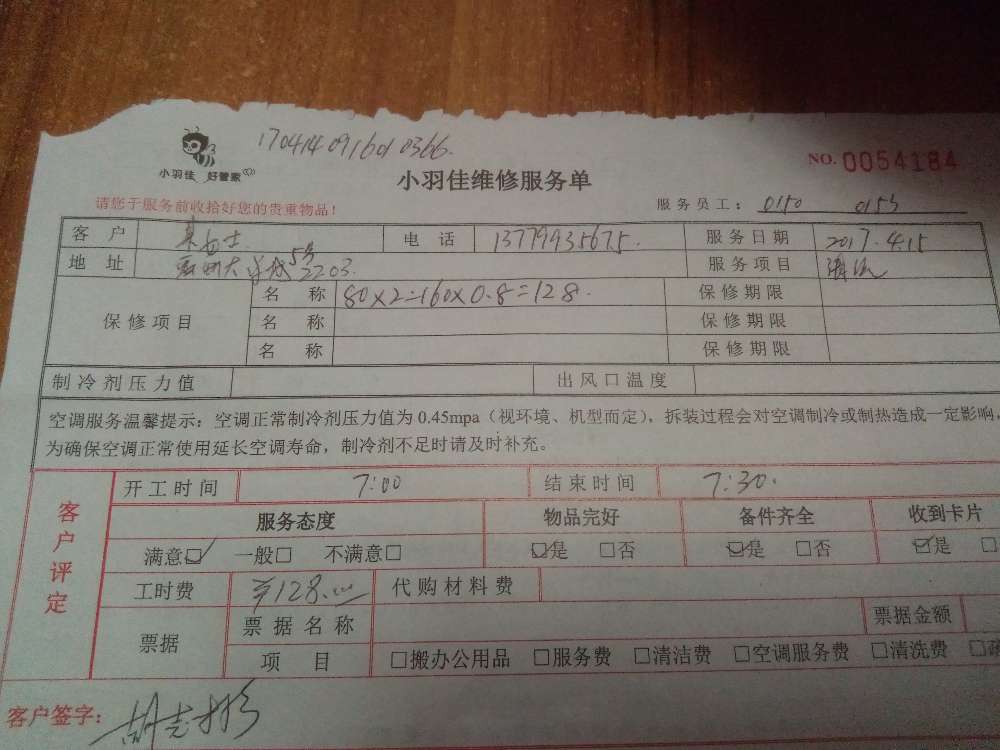 170414091601 0366.
小羽佳 好管家
NO. 0054184
小羽佳维修服务单
请您于服务前收拾好您的贵重物品!
服务员工: 0150 0153
客户 女士 电话 13779935675. 服务日期 2017.4.15
地址 5号2203. 服务项目 清洗
保修项目 名称 80×2=160×0.8=128. 保修期限
名称 保修期限
名称 保修期限
制冷剂压力值 出风口温度
空调服务温馨提示:空调正常制冷剂压力值为0.45mpa(视环境、机型而定),拆装过程会对空调制冷或制热造成一定影响,
为确保空调正常使用延长空调寿命,制冷剂不足时请及时补充。
客户评定 开工时间 7:00 结束时间 7:30.
服务态度 物品完好 备件齐全 收到卡片
满意☑ 一般□ 不满意□ ☑是 □否 ☑是 □否 ☑是 □
工时费 ¥128.00 代购材料费
票据 票据名称 票据金额
项目 □搬办公用品 □服务费 □清洁费 □空调服务费 □清洗费 □
客户签字: 胡志彬